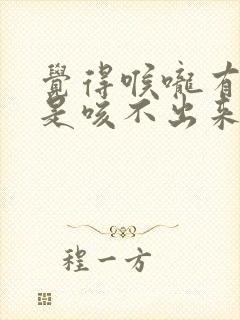 覺得喉嚨有
是咳不出來
程一方